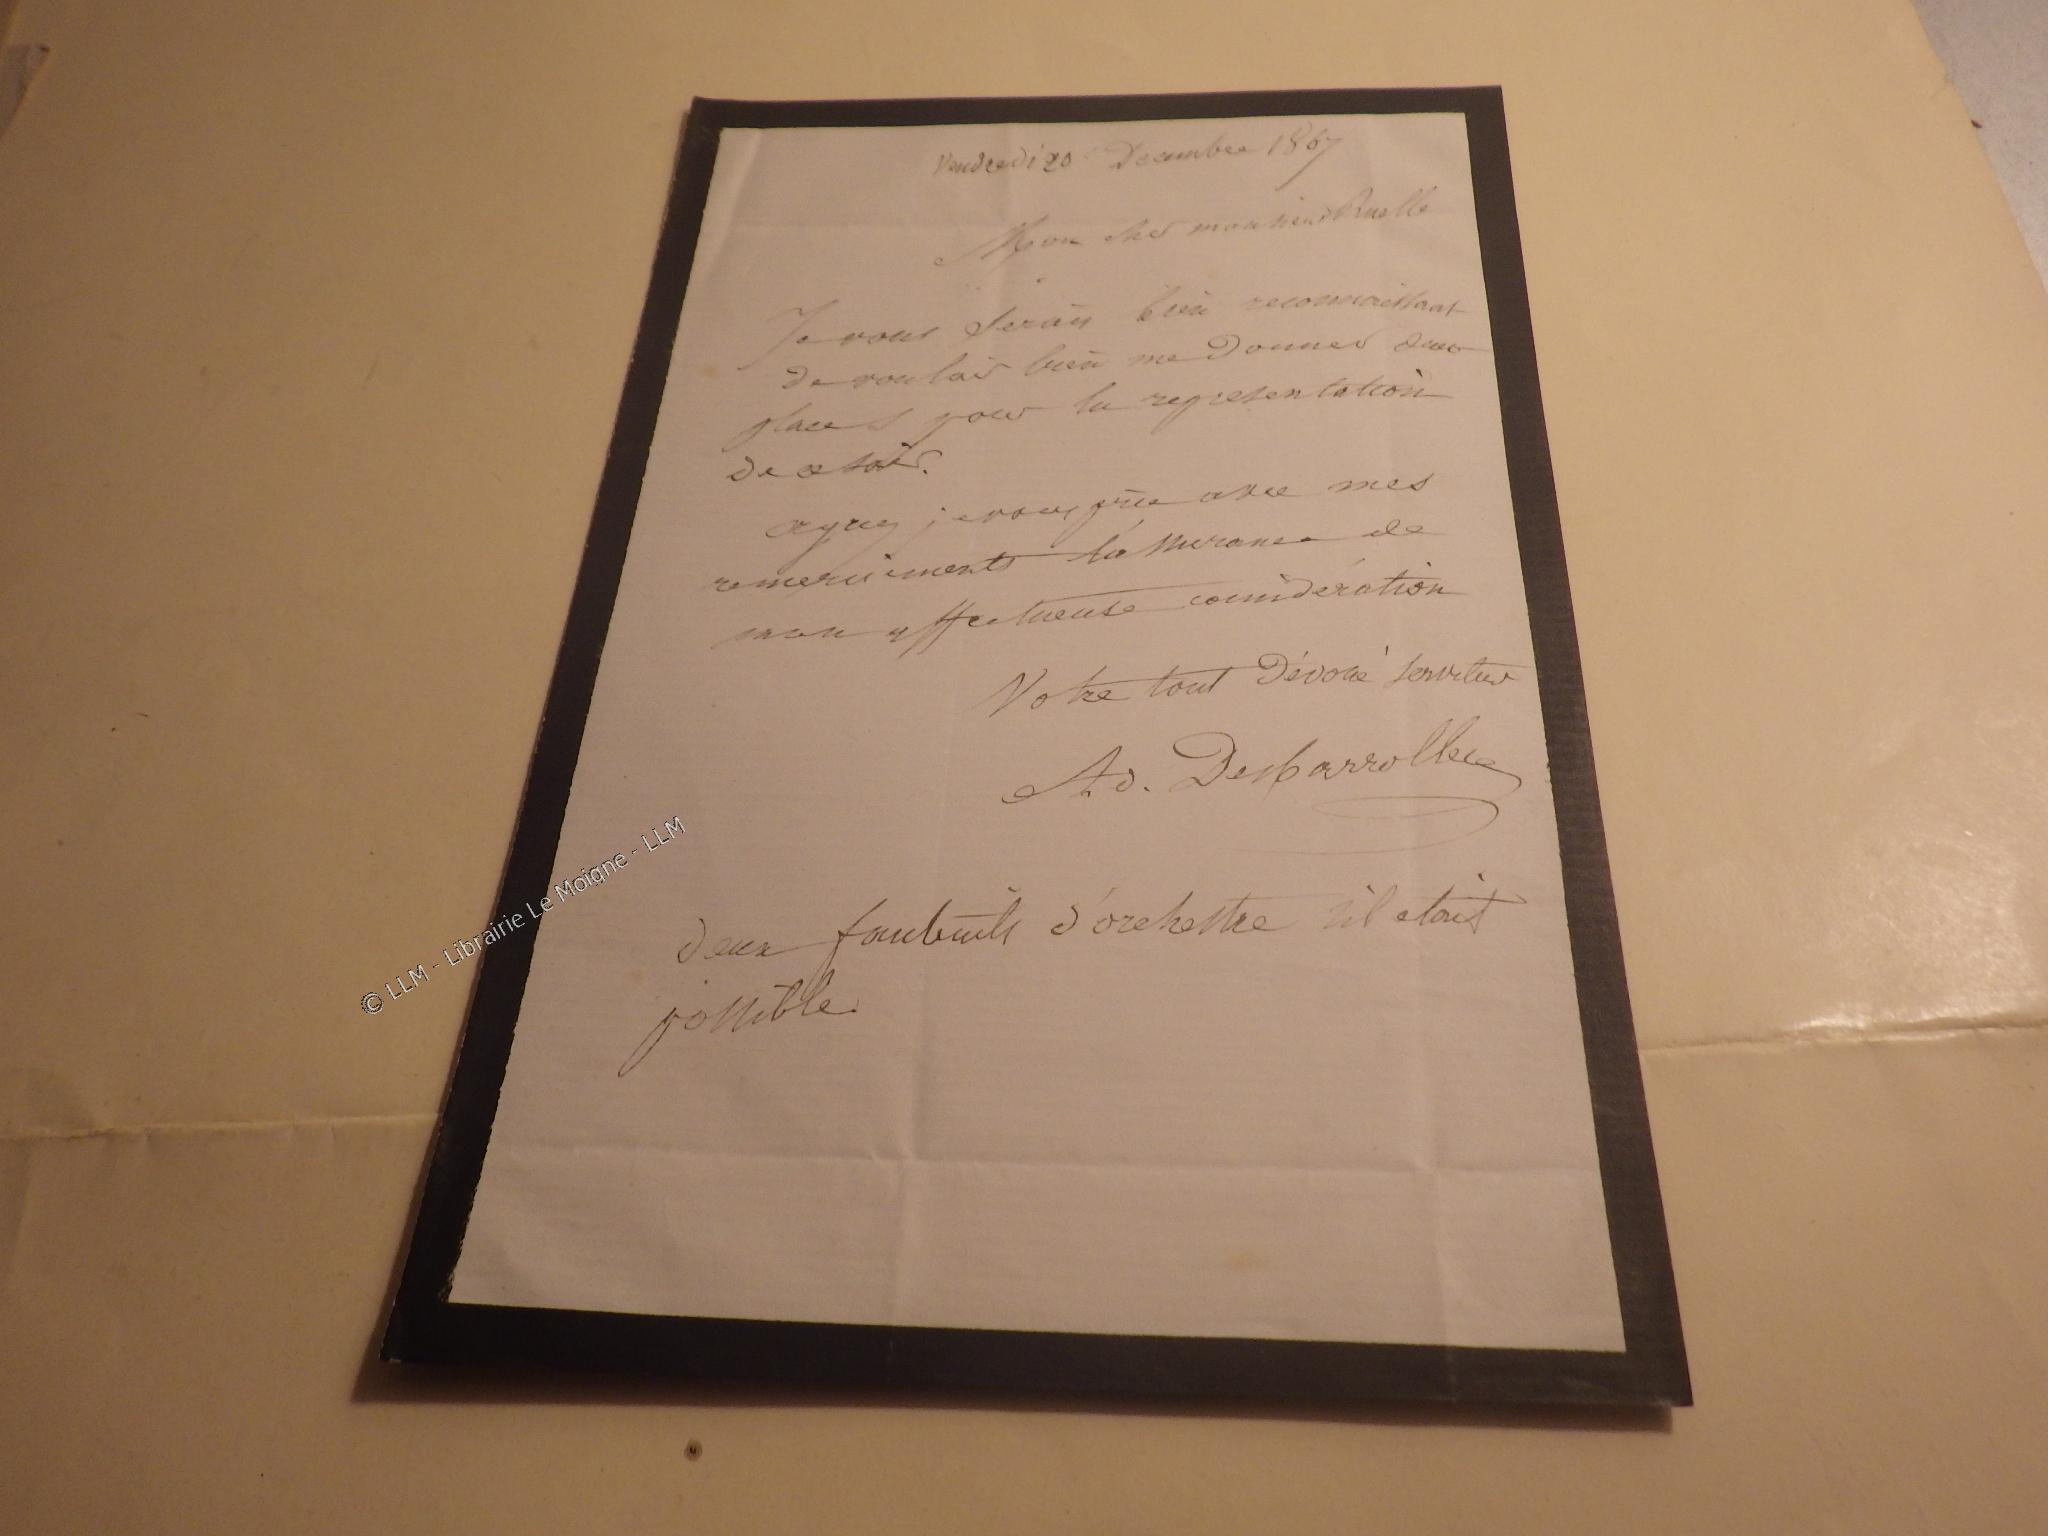 Vendredi 20 Decembre 1867
Mon cher monsieur Ruelle
Je vous serais bien reconnaissant
de vouloir bien me donner deux
places pour la representation
de ce soir.
agréez je vous prie avec mes
remerciments l'assurance de
mon affectueuse considération
Votre tout dévoué serviteur
Ad. Desbarrolles
deux fauteuils d'orchestre s'il etait
possible.
© LLM - Librairie Le Moigne - LLM